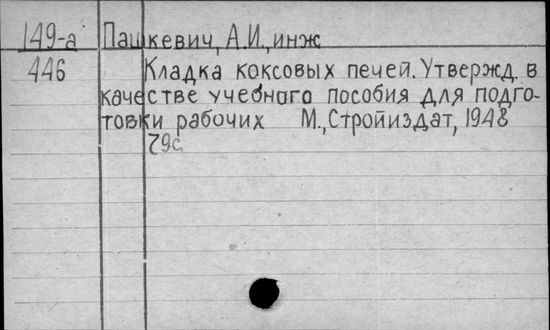 149-а Пашкевич, А.И., инж
446 Кладка коксовых печей. Утвержд. в
качестве учебного пособия для подго-
товки рабочих М., Стройиздат, 1948
79с.